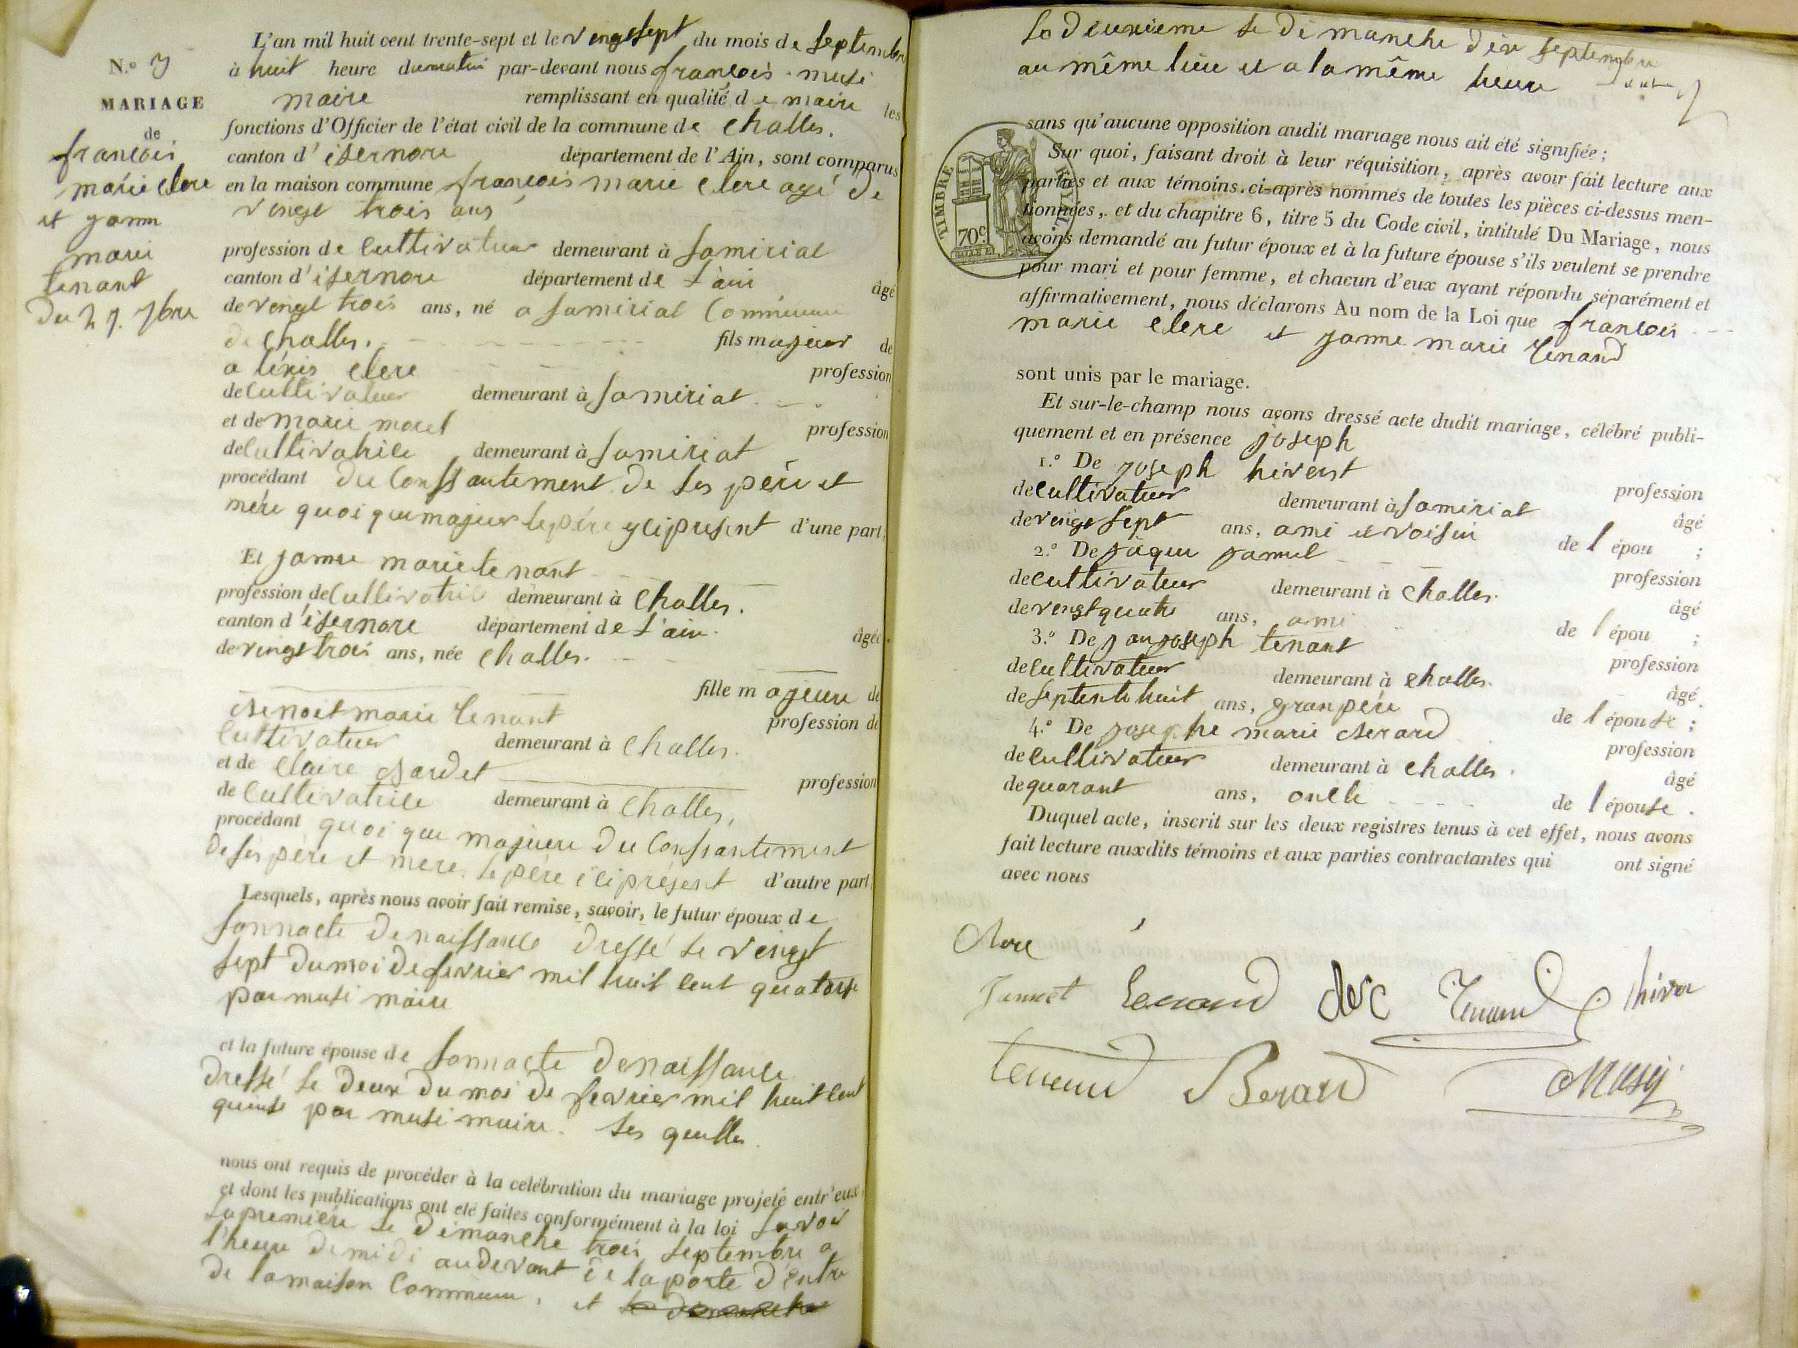 N.º 7
MARIAGE
de
françois
marie clere
et janne
marie
tenant
Du 27. 7bre
L'an mil huit cent trente-sept et le vingt sept du mois de septembre
à huit heure du matin par-devant nous françois musi
maire remplissant en qualité de maire les
fonctions d'Officier de l'état civil de la commune de Challes.
canton d'isernore département de l'Ain, sont comparus
en la maison commune françois marie clere agé de
vingt trois ans
profession de cultivateur demeurant à samiriat
canton d'isernore département de L'ain âgé
de vingt trois ans, né a samiriat Commune
de Challes. fils majeur de
alexis clere profession
de cultivateur demeurant à samiriat
et de marie morel profession
de cultivatrice demeurant à samiriat
procédant du Conssantement de ses père et
mère quoi que majeur le père ycipresent d'une part,
Et janne marie tenant
profession de Cultivatrice demeurant à Challes.
canton d'isernore département de L'ain. âgée
de vingt trois ans, née Challes.
fille majeure de
Benoit marie tenant profession de
Cultivateur demeurant à Challes.
et de Claire Bardet profession
de Cultivatrice demeurant à Challes,
procédant quoi que majeure du Conssantement
de ses père et mere. le père icipresent d'autre part,
Lesquels, après nous avoir fait remise, savoir, le futur époux de
sonnacte de naissance dressé le vingt
sept du moi de fevrier mil huit cent quatorse
par musi maire
et la future épouse de sonnacte de naissance
dressé le deux du moi de fevrier mil huit cent
quinse par musi maire. les quelles
nous ont requis de procéder à la célébration du mariage projeté entr'eux
et dont les publications ont été faites conformément à la loi savoir
la premiere le Dimanche trois septembre a
l'heure de midi audevant de la porte d'entre
de la maison Commune. et le dimanche
la deuxieme le Dimanche dix septembre
au même lieu et a la même heure
TIMBRE ROYAL
70c.
sans qu'aucune opposition audit mariage nous ait été signifiée;
Sur quoi, faisant droit à leur réquisition, après avoir fait lecture aux
parties et aux témoins ci-après nommés de toutes les pièces ci-dessus men-
tionnées, et du chapitre 6, titre 5 du Code civil, intitulé Du Mariage, nous
avons demandé au futur époux et à la future épouse s'ils veulent se prendre
pour mari et pour femme, et chacun d'eux ayant répondu séparément et
affirmativement, nous déclarons Au nom de la Loi que françois
marie clere et janne marie tenand
sont unis par le mariage.
Et sur-le-champ nous avons dressé acte dudit mariage, célébré publi-
quement et en présence joseph
1.º De joseph hivert profession
de cultivateur demeurant à samiriat âgé
de vingt sept ans, ami et voisin de l'épou ;
2.º De jaque jamet profession
de cultivateur demeurant à Challes. âgé
de vingt quatre ans, ami de l'épou ;
3.º De janjoseph tenant profession
de cultivateur demeurant à Challes. âgé
de septente huit ans, granpère de l'épouse ;
4.º De josephe marie Berard profession
de cultivateur demeurant à Challes. âgé
de quarant ans, oncle de l'épouse.
Duquel acte, inscrit sur les deux registres tenus à cet effet, nous avons
fait lecture auxdits témoins et aux parties contractantes qui ont signé
avec nous
Clere
Jamet tenand clerc Tenand hiver
tenand Berard Musy